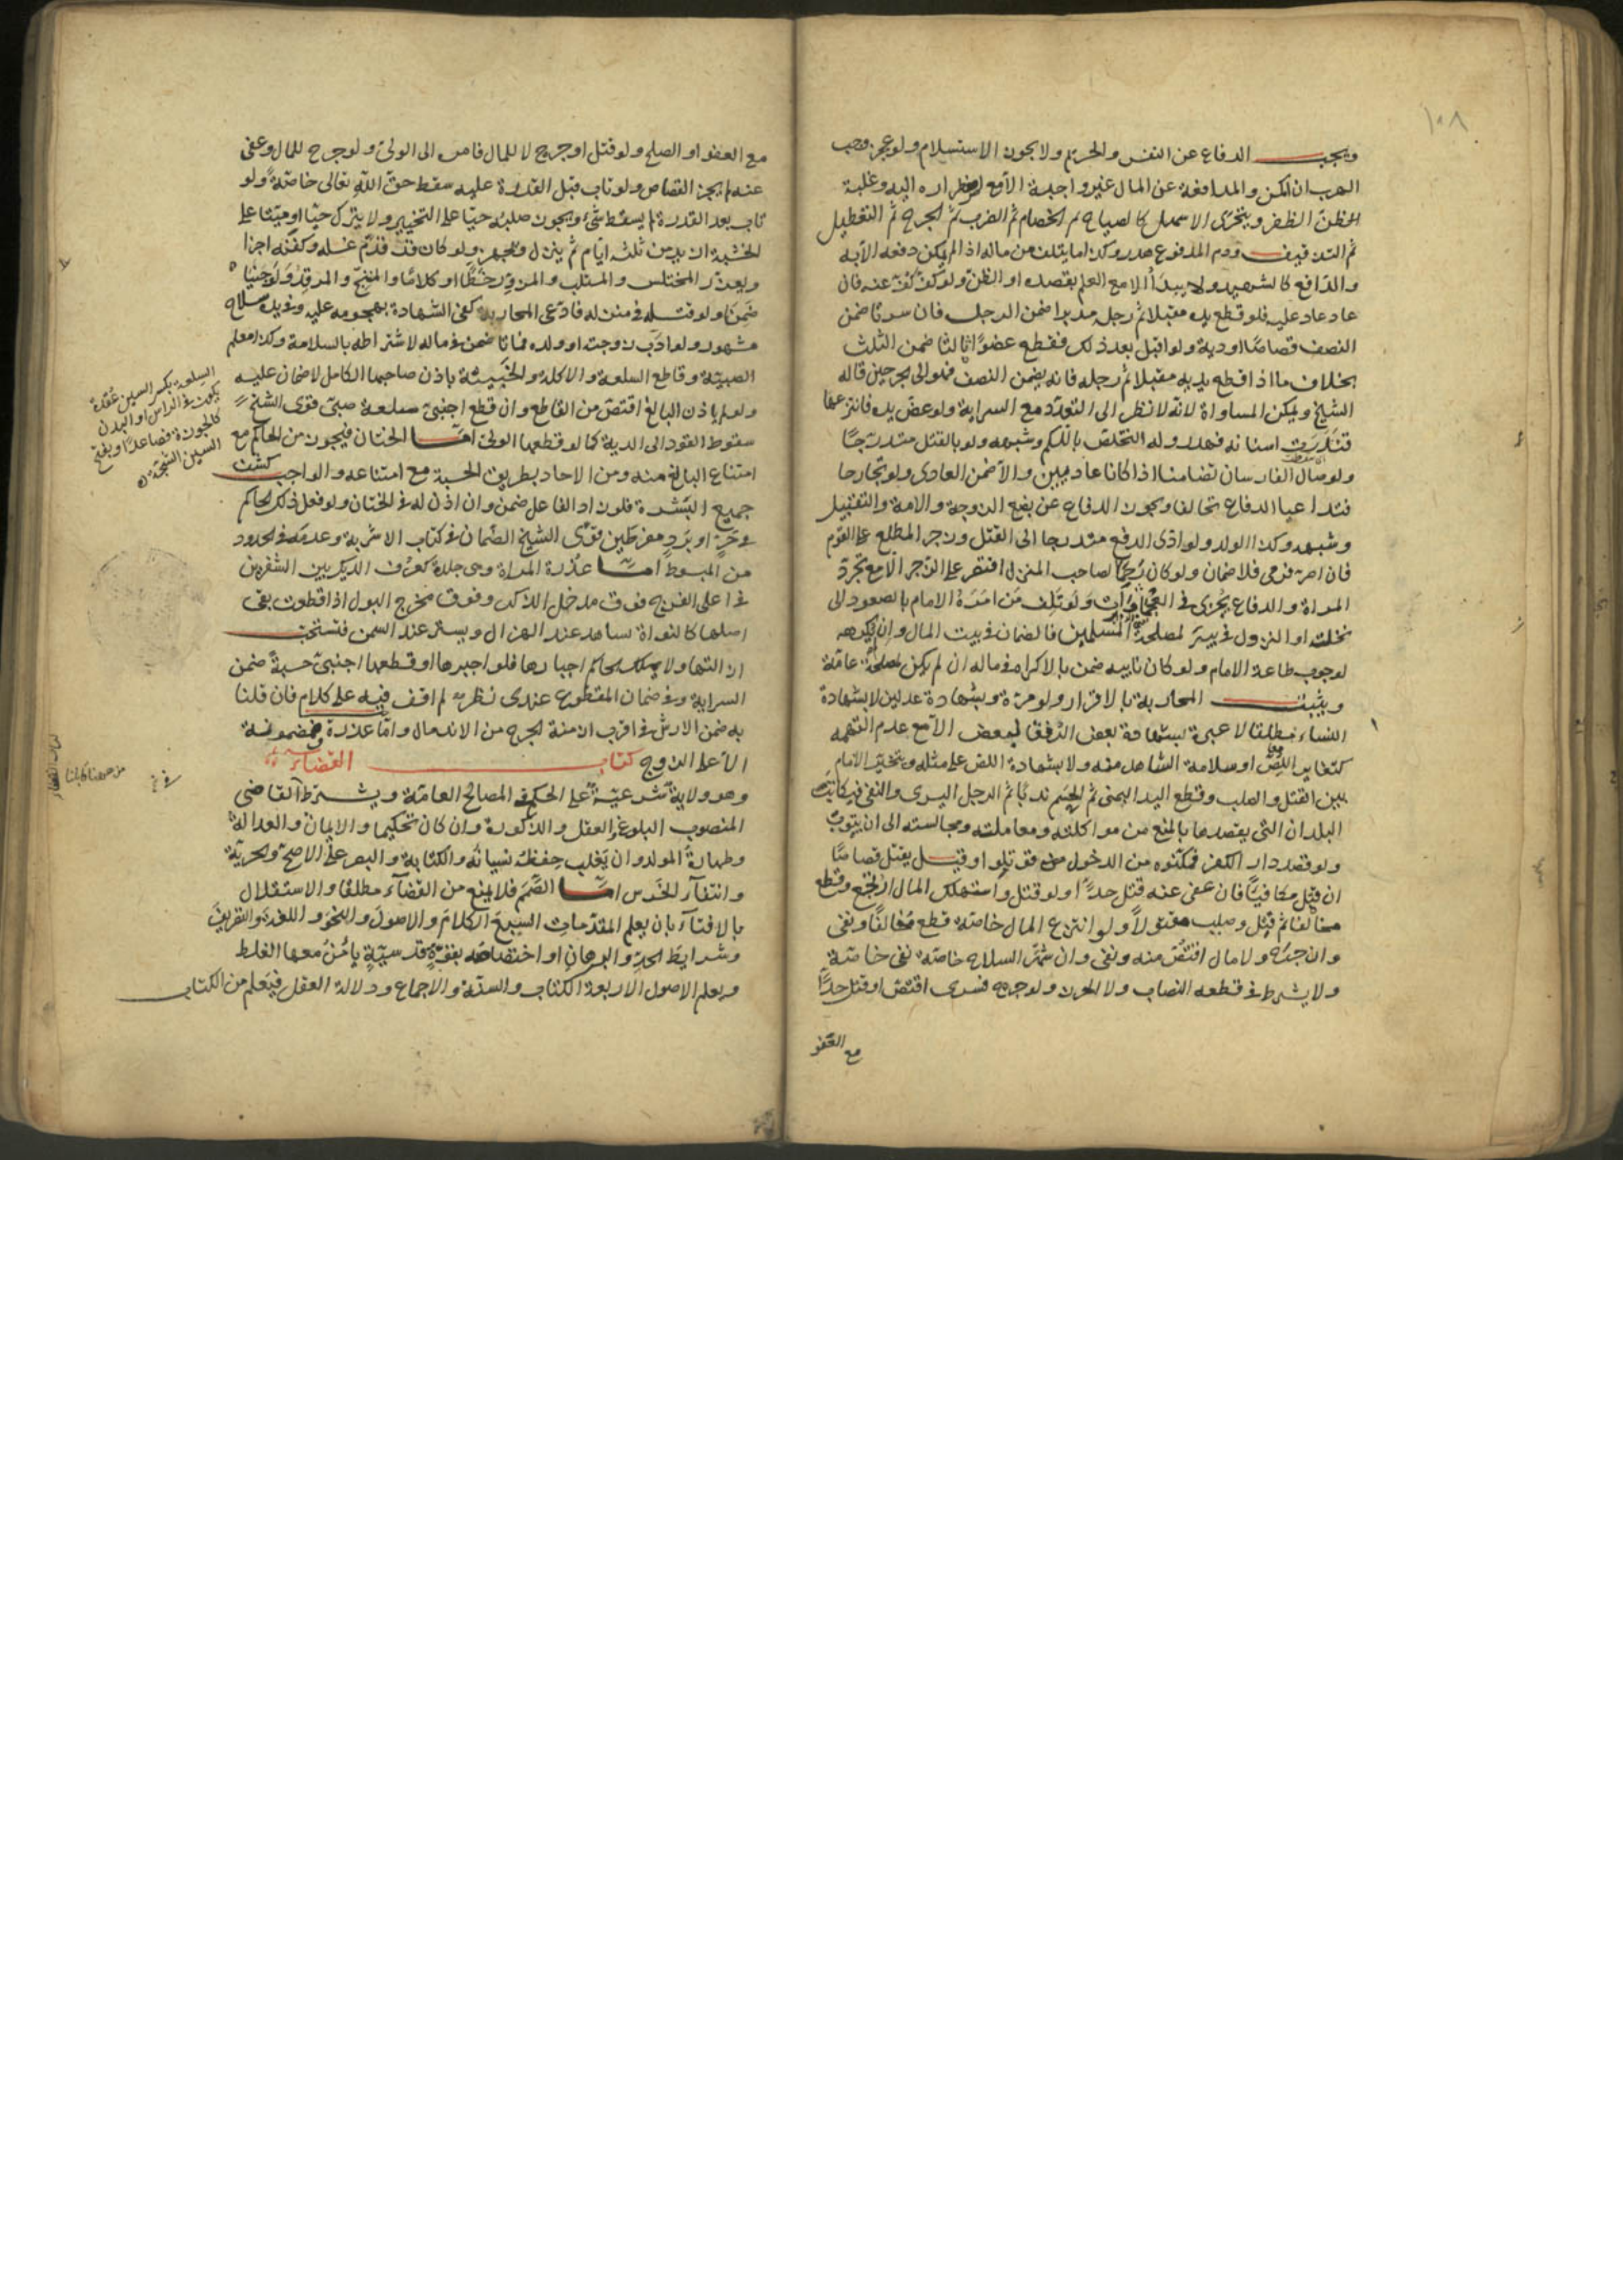 ١٠٨
ويجب الدفاع عن النفس والحريم ولا يجوز الاستسلام ولو عجز وجب
الهرب ان امكن والمدافعة عن المال غير واجبة الا مع اضطراره اليه وغلبة
الظن الظفر ويتحرى الاسهل كالصياح ثم الخصام ثم الضرب ثم الجرح ثم التعطيل
ثم التدفيف ودم المدفوع هدر وكذا ما يتلف من ماله اذا لم يمكن دفعه الا به
والدافع كالشهيد ولا يبدأ الا مع العلم بقصده او الظن ولو كف كف عنه فان
عاد عاد عليه فلو قطع يده مقبلا ثم رجله مدبرا ضمن الرجل فان سرتا ضمن
النصف قصاصا او دية ولو اقبل بعد ذلك فقطع عضوا ثالثا ضمن الثلث
بخلاف ما اذا قطع يديه مقبلا ثم رجله فانه يضمن النصف فلو الى بجرحين قاله
الشيخ ويمكن المساواة لانه لا نظر الى التعدد مع السراية ولو عض يده فانتزعها
فندرت اسنانه فهدر وله التخلص باللكم وشبهه ولو بالقتل متدرجا
ولو صال الفارسان تضامنا اذا كانا عاديين والا ضمن العادي ولو تجارحا
فتداعيا الدفاع تحالفا ويجوز الدفاع عن بضع الزوجة والامة والتقبيل
وشبهه وكذا الولد ولو ادى الدفع متدرجا الى القتل وزجر المطلع على القوم
فان اصر فرمى فلا ضمان ولو كان رحما لصاحب المنزل اقتصر على الزجر الا مع تجرد
المراة والدفاع يجرى في العجماوات ولو تلف من امره الامام بالصعود الى
نخلة او النزول في بئر لمصلحة المسلمين فالضمان في بيت المال وان يكرهه
لوجوب طاعة الامام ولو كان نايبه ضمن بالاكراه في ماله ان لم يكن لمصلحة عامة
ويثبت المحاربة بالاقرار ولو مرة وبشهادة عدلين لا بشهادة
النساء مطلقا لا عبرة بشهادة بعض الرفقا لبعض الا مع عدم التهمة
كتغاير اللص او سلامة الشاهد منه ولا بشهادة اللص على مثله ويتخير الامام
بين القتل والصلب وقطع اليد اليمنى ثم الحسم ندبا ثم الرجل اليسرى والنفي فيكاتب
البلدان التي يقصدها بالمنع من مواكلته ومعاملته ومجالسته الى ان يتوب
ولو قصد دار الكفر فمكنوه من الدخول قوتلوا وقيل يقتل قصاصا
ان قتل مكافيا فان عفى عنه قتل حدا ولو قتل واستهلك المال ارتجع وقطع
مخالفا ثم قتل وصلب مقتولا ولو انتزع المال خاصة قطع مخالفا ونفى
وان جرح ولا مال اقتص منه ونفى وان شهر السلاح خاصة نفى خاصة
ولا يشترط في قطعه النصاب ولا الحرز ولو جرح فسرى اقتص او قتل حدا
مع العفو
مع العفو او الصلح ولو قتل او جرح لا للمال فامره الى الولي ولو جرح للمال وعفى
عنه لم يجز القصاص ولو تاب قبل القدرة عليه سقط حق الله تعالى خاصة ولو
تاب بعد القدرة لم يسقط شيء ويجوز صلبه حيا على التخيير ولا يترك حيا او ميتا على
الخشبة ازيد من ثلثة ايام ثم ينزل ويجهز ولو كان قد قدم غسله وكفنه اجزا
ويعزر المختلس والمستلب والمزور خطا او كلاما والمبنج والمرقد ولو جنيا
ضمنا ولو قتله في منزله فادعى المحاربة كفى الشهادة بهجومه عليه وفي يده سلاح
مشهور ولو ادب زوجته او ولده فماتا ضمن في ماله لاشتراطه بالسلامة وكذا معلم
الصبية وقاطع السلعة والاكلة والخبيثة باذن صاحبها الكامل لا ضمان عليه
ولو بلا اذن البالغ اقتص من القاطع وان قطع اجنبي سلعة صبي قوى الشيخ
سقوط القود الى الدية كما لو قطعها الولي اما الختان فيجوز من الحاكم مع
امتناع البالغ منه ومن الاحاد بطريق الحسبة مع امتناعه والواجب كشف
جميع البشرة فلو زاد الفاعل ضمن وان اذن له في الختان ولو فعل ذلك الحاكم
في حر او برد مفرطين قوى الشيخ الضمان في كتاب الاشربة وعدمه في الحدود
من المبسوط اما عذرة المراة وهي جلدة كعرف الديك بين الشفرين
في اعلى الفرج فوق مدخل الذكر وفوق مخرج البول اذا قطعت بقى
اصلها كالنواة تشاهد عند الهزال ويستر عند السمن فتستحب
ازالتها ولا يملك الحاكم اجبارها فلو اجبرها او قطعها اجنبي حسبة ضمن
السراية وفي ضمان المقطوع عندى نظر لم اقف فيه على كلام فان قلنا
به ضمن الارش في اقرب ازمنة الجرح من الاندمال واما عذرة فمضمونة
الا على الزوج كتاب القضاء
وهو ولاية شرعية على الحكم في المصالح العامة ويشترط القاضي
المنصوب البلوغ والعقل والذكورة وان كان تحكيما والايمان والعدالة
وطهارة المولد وان يغلب حفظه نسيانه والكتابة والبصر على الاصح والحرية
وانتفاء الخرس اما الصمم فلا يمنع من القضاء مطلقا والاستقلال
بالافتاء بان يعلم المقدمات السبع الكلام والاصول والنحو واللغة والتصريف
وشرايط الحد والبرهان او اختصاصه بقوة قدسية يامن معها الغلط
ويعلم الاصول الاربعة الكتاب والسنة والاجماع ودلالة العقل فيعلم من الكتاب
السلعة بكسر السين عقدة
يكون في الراس او البدن
كالجوزة فصاعدا وبفتح
السين الشجة